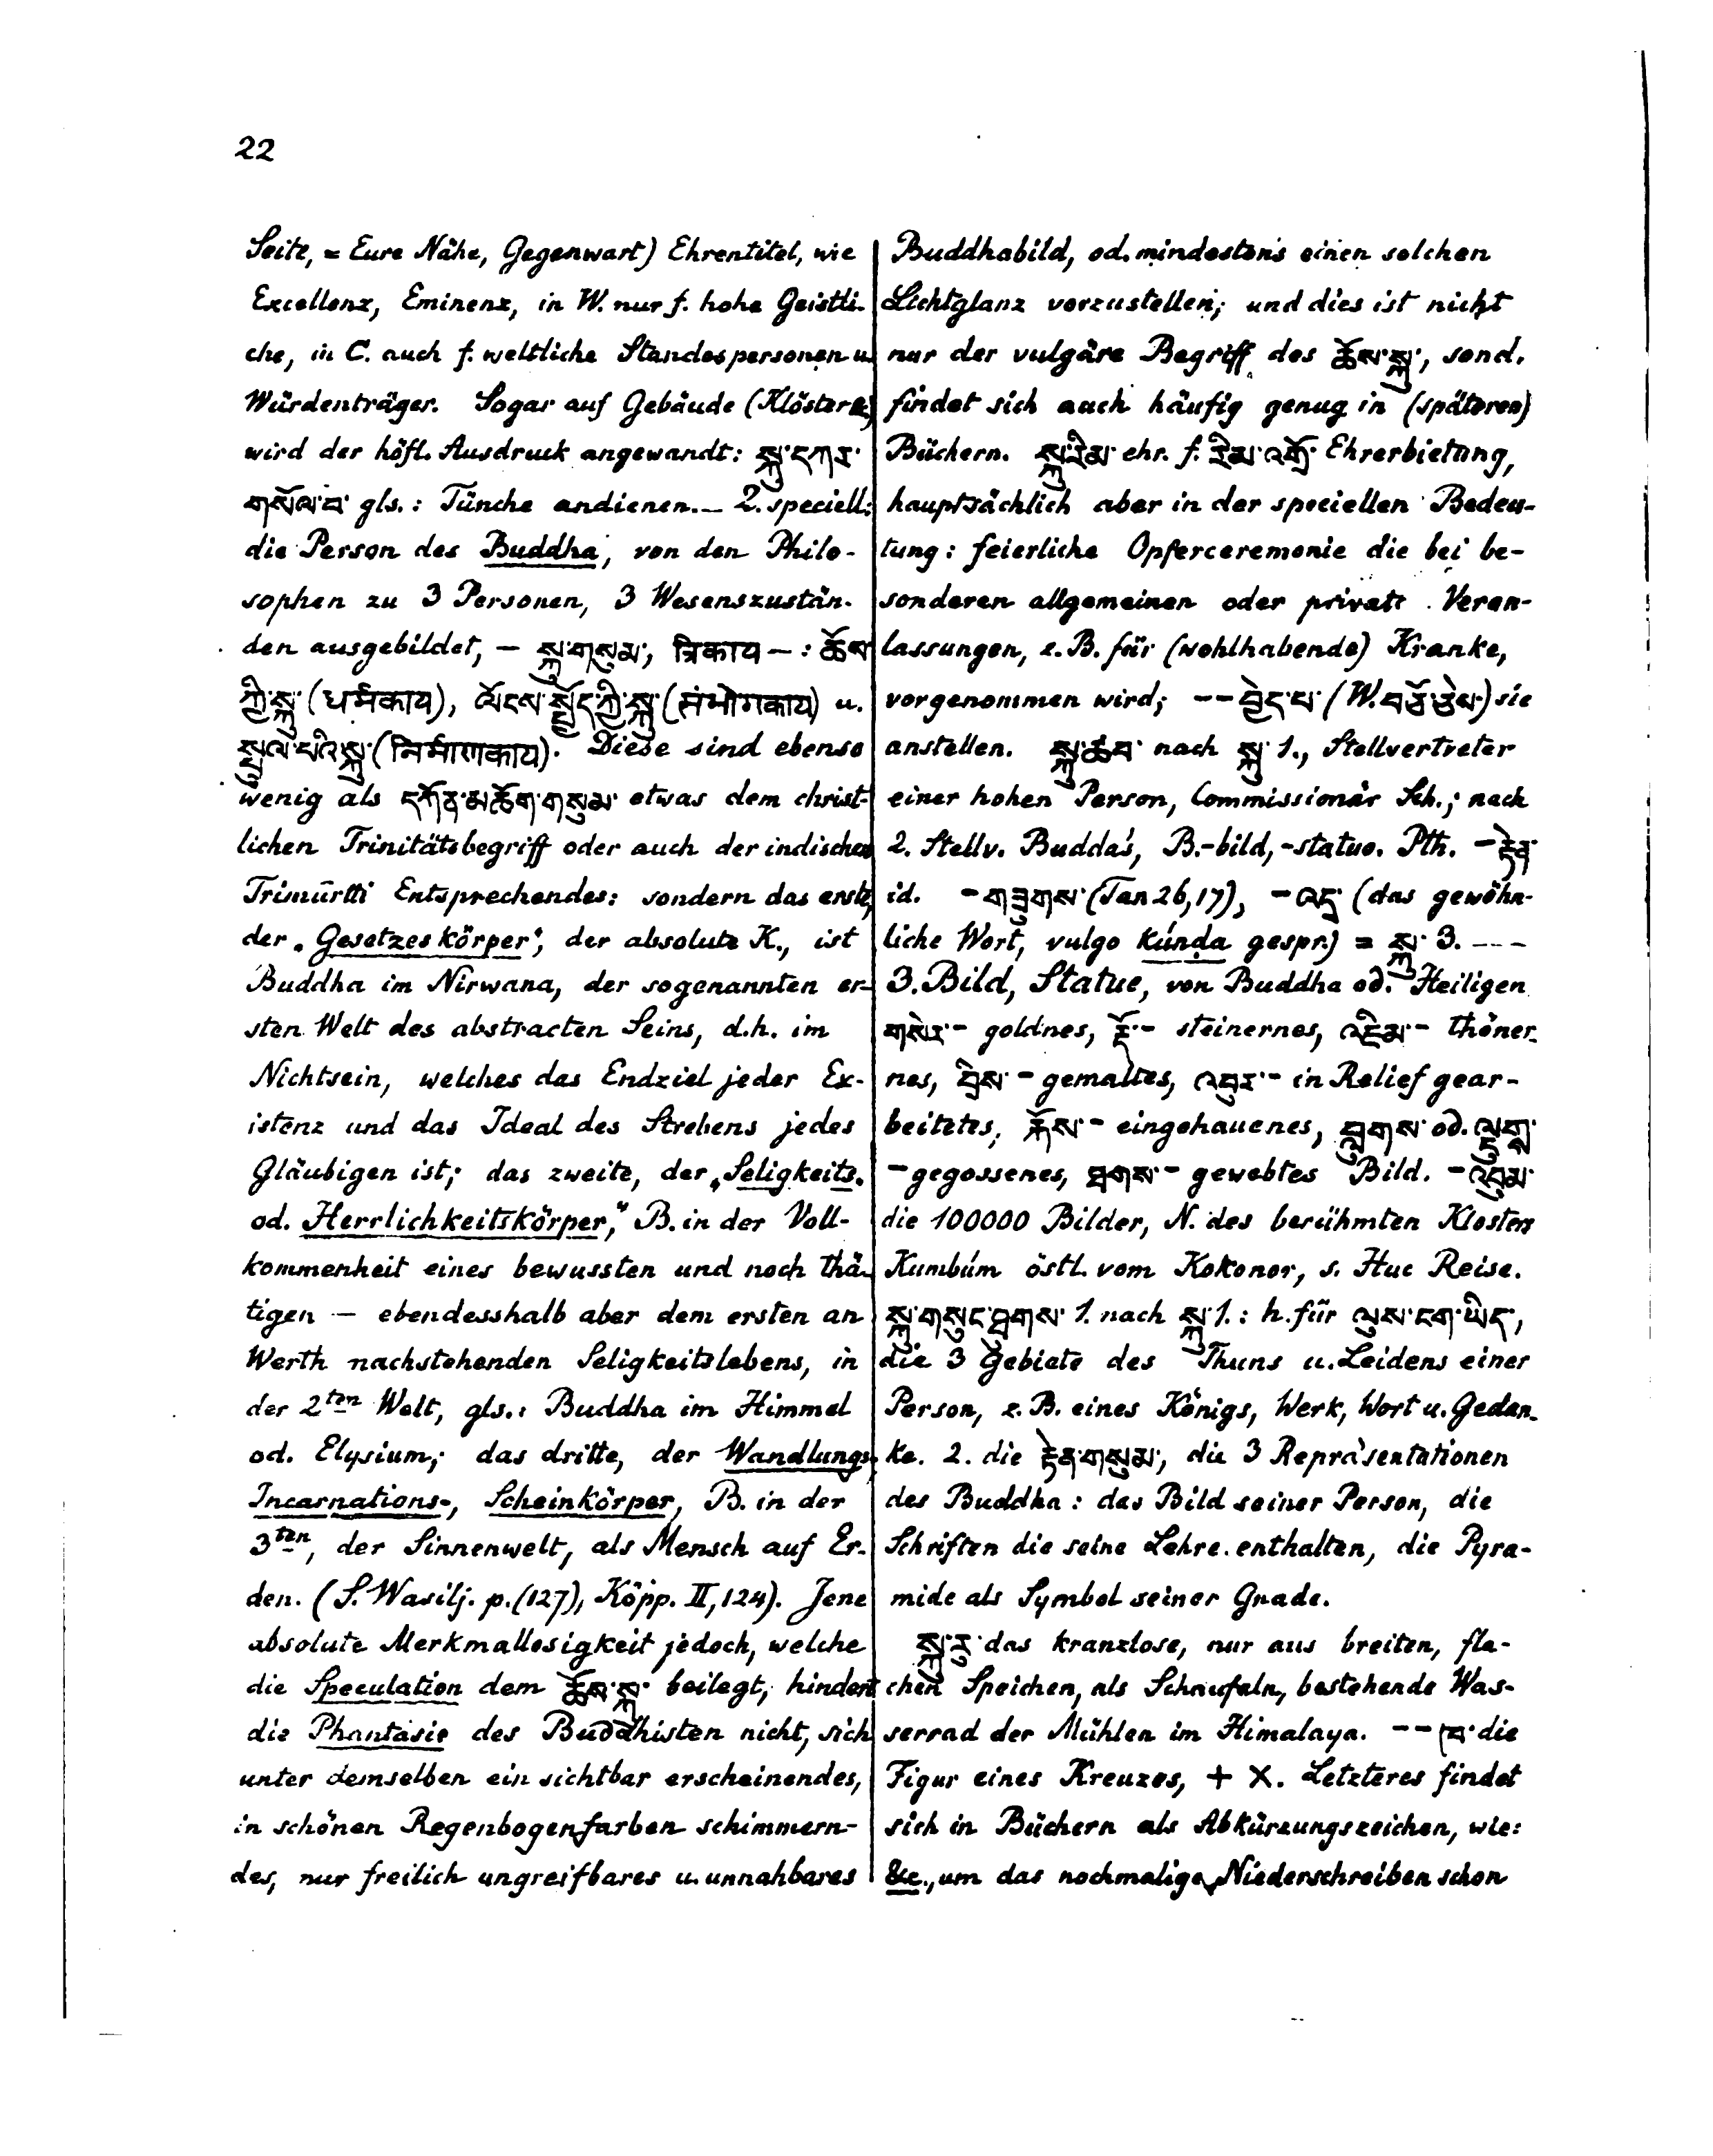 22
Seite, = Eure Nähe, Gegenwart) Ehrentitel, wie
Excellenz, Eminenz, in W. nur f. hohe Geistli-
che, in C. auch f. weltliche Standespersonen u.
Würdenträger. Sogar auf Gebäude (Klöster &)
wird der höfl. Ausdruck angewandt: སྐུ་དཀར་
གསོལ་བ་ gls.: Tünche andienen. — 2. speciell:
die Person des Buddha, von den Philo-
sophen zu 3 Personen, 3 Wesenszustän-
den ausgebildet, — སྐུ་གསུམ་, त्रिकाय —: ཆོས་
ཀྱི་སྐུ་ (धर्मकाय), ལོངས་སྤྱོད་ཀྱི་སྐུ་ (संभोगकाय) u.
སྤྲུལ་པའི་སྐུ་ (निर्माणकाय). Diese sind ebenso
wenig als དཀོན་མཆོག་གསུམ་ etwas dem christ-
lichen Trinitätsbegriff oder auch der indischen
Trimūrtti Entsprechendes: sondern das erste,
der „Gesetzeskörper", der absolute K., ist
Buddha im Nirwana, der sogenannten er-
sten Welt des abstracten Seins, d.h. im
Nichtsein, welches das Endziel jeder Ex-
istenz und das Ideal des Strebens jedes
Gläubigen ist; das zweite, der „Seligkeits-
od. Herrlichkeitskörper," B. in der Voll-
kommenheit eines bewussten und noch thä-
tigen — ebendesshalb aber dem ersten an
Werth nachstehenden Seligkeitslebens, in
der 2ten Welt, gls.: Buddha im Himmel
od. Elysium; das dritte, der Wandlungs-,
Incarnations-, Scheinkörper, B. in der
3ten, der Sinnenwelt, als Mensch auf Er-
den. (S. Wasilj. p. (127), Köpp. II, 124). Jene
absolute Merkmallosigkeit jedoch, welche
die Speculation dem ཆོས་སྐུ་ beilegt, hindert
die Phantasie des Buddhisten nicht, sich
unter demselben ein sichtbar erscheinendes,
in schönen Regenbogenfarben schimmern-
des, nur freilich ungreifbares u. unnahbares
Buddhabild, od. mindestens einen solchen
Lichtglanz vorzustellen; und dies ist nicht
nur der vulgäre Begriff des ཆོས་སྐུ་, sond.
findet sich auch häufig genug in (späteren)
Büchern. སྐུ་རིམ་ ehr. f. རིམ་འགྲོ་ Ehrerbietung,
hauptsächlich aber in der speciellen Bedeu-
tung: feierliche Opferceremonie die bei be-
sonderen allgemeinen oder privat Veran-
lassungen, z. B. für (wohlhabende) Kranke,
vorgenommen wird; -- བྱེད་པ་ (W. བཅོ་ཅེས་) sie
anstellen. སྐུ་ཚབ་ nach སྐུ་ 1., Stellvertreter
einer hohen Person, Commissionär Sch.; nach
2. Stellv. Budda's, B.-bild, -statue. Pth. - རྟེན་
id. - གཟུགས་ (Tan 26,17), - འདྲ་ (das gewöhn-
liche Wort, vulgo kúnḍa gespr.) = སྐུ་ 3. ---
3. Bild, Statue, von Buddha od. Heiligen
གསེར་- goldnes, རྡོ་- steinernes, འཇིམ་- thöner-
nes, བྲིས་- gemaltes, འབུར་- in Relief gear-
beitetes, རྐོས་- eingehauenes, བླུགས་ od. ལྡུགས་
- gegossenes, ཐགས་- gewebtes Bild. - འབུམ་
die 100000 Bilder, N. des berühmten Klosters
Kumbúm östl. vom Kokonor, s. Huc Reise.
སྐུ་གསུང་ཐུགས་ 1. nach སྐུ་ 1.: h. für ལུས་ངག་ཡིད་,
die 3 Gebiete des Thuns u. Leidens einer
Person, z. B. eines Königs, Werk, Wort u. Gedan-
ke. 2. die རྟེན་གསུམ་, die 3 Repräsentationen
des Buddha: das Bild seiner Person, die
Schriften die seine Lehre enthalten, die Pyra-
mide als Symbol seiner Gnade.
སྐུ་རུ་ das kranzlose, nur aus breiten, fla-
chen Speichen, als Schaufeln, bestehende Was-
serrad der Mühlen im Himalaya. -- ཁ་ die
Figur eines Kreuzes, + ×. Letzteres findet
sich in Büchern als Abkürzungszeichen, wie:
&c., um das nochmalige Niederschreiben schon